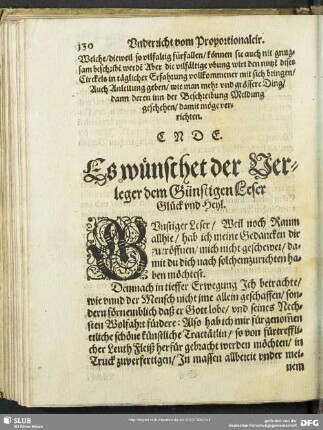 130 Vnderricht vom Proportionalcir.
Welche/ dieweil so vilfaltig fürfallen/ können sie auch nit gnug-
sam beschribē werdē Aber die vilfältige vbung wirt den nutz dises
Circkels in täglicher Erfahrung vollkommener mit sich bringen/
Auch Anleitung geben/ wie man mehr vnd grössere Ding/
dann deren inn der Beschreibung Meldung
geschehen/ damit möge ver-
richten.
E N D E.
Es wünschet der Ver-
leger dem Günstigen Leser
Glück vnd Heyl.
GVnstiger Leser/ Weil noch Raum
allhie/ hab ich meine Gedancken dir
zueröffnen/ mich nicht geschewet/ da-
mit du dich nach solchem zurichten ha-
ben möchtest.
Demnach in tieffer Erwegung Ich betrachte/
wie vnnd der Mensch nicht jme allein geschaffen/ son-
dern fürnemblich daß er Gott lobe/ vnd seines Nech-
sten Wolfahrt fürdere: Also hab ich mir fürgenommen
ettliche schöne künstliche Tractätlin/ so von fürtreffli-
cher Leuth Fleiß herfür gesucht worden möchten/ in
Truck zuverfertigen/ In massen allbereit vnder mei-
nem
SLUB
Wir führen Wissen.
gefördert von der
Deutschen Forschungsgemeinschaft
DFG